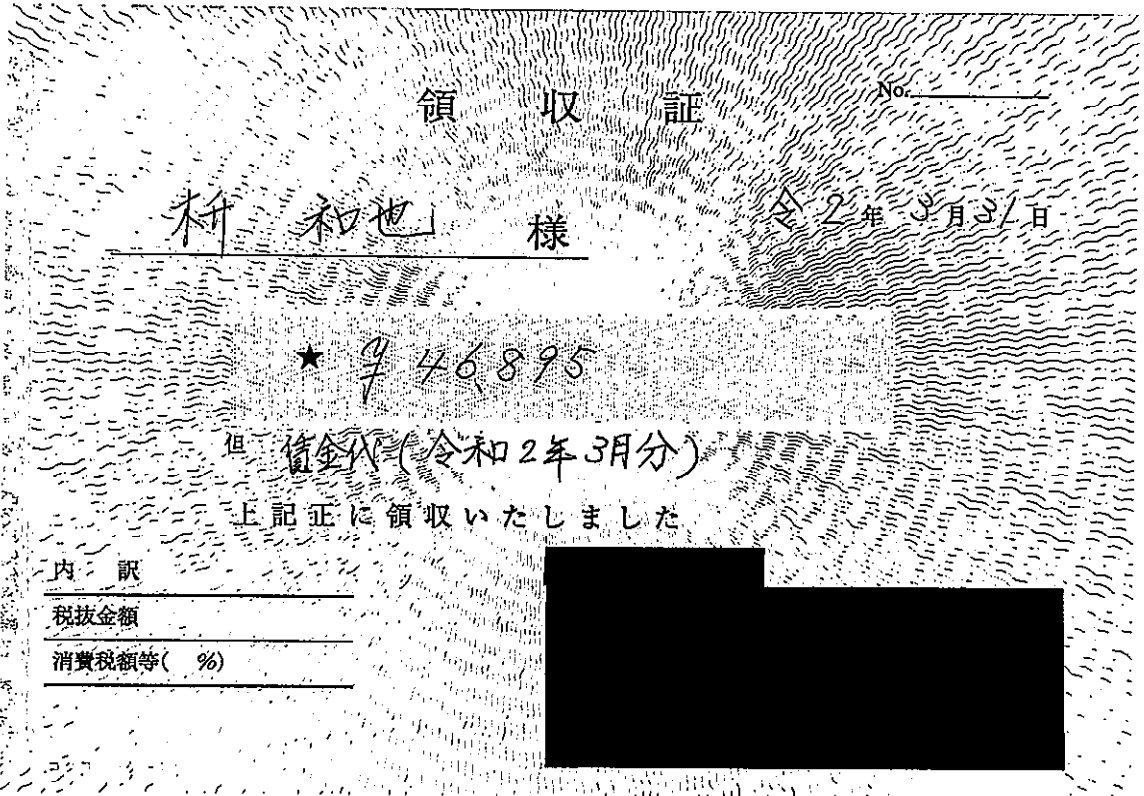 領収証
No.
枡 和也 様
令2年3月31日
★ ¥46,895
但 (令和2年3月分)
上記正に領収いたしました
内 訳
税抜金額
消費税額等( %)